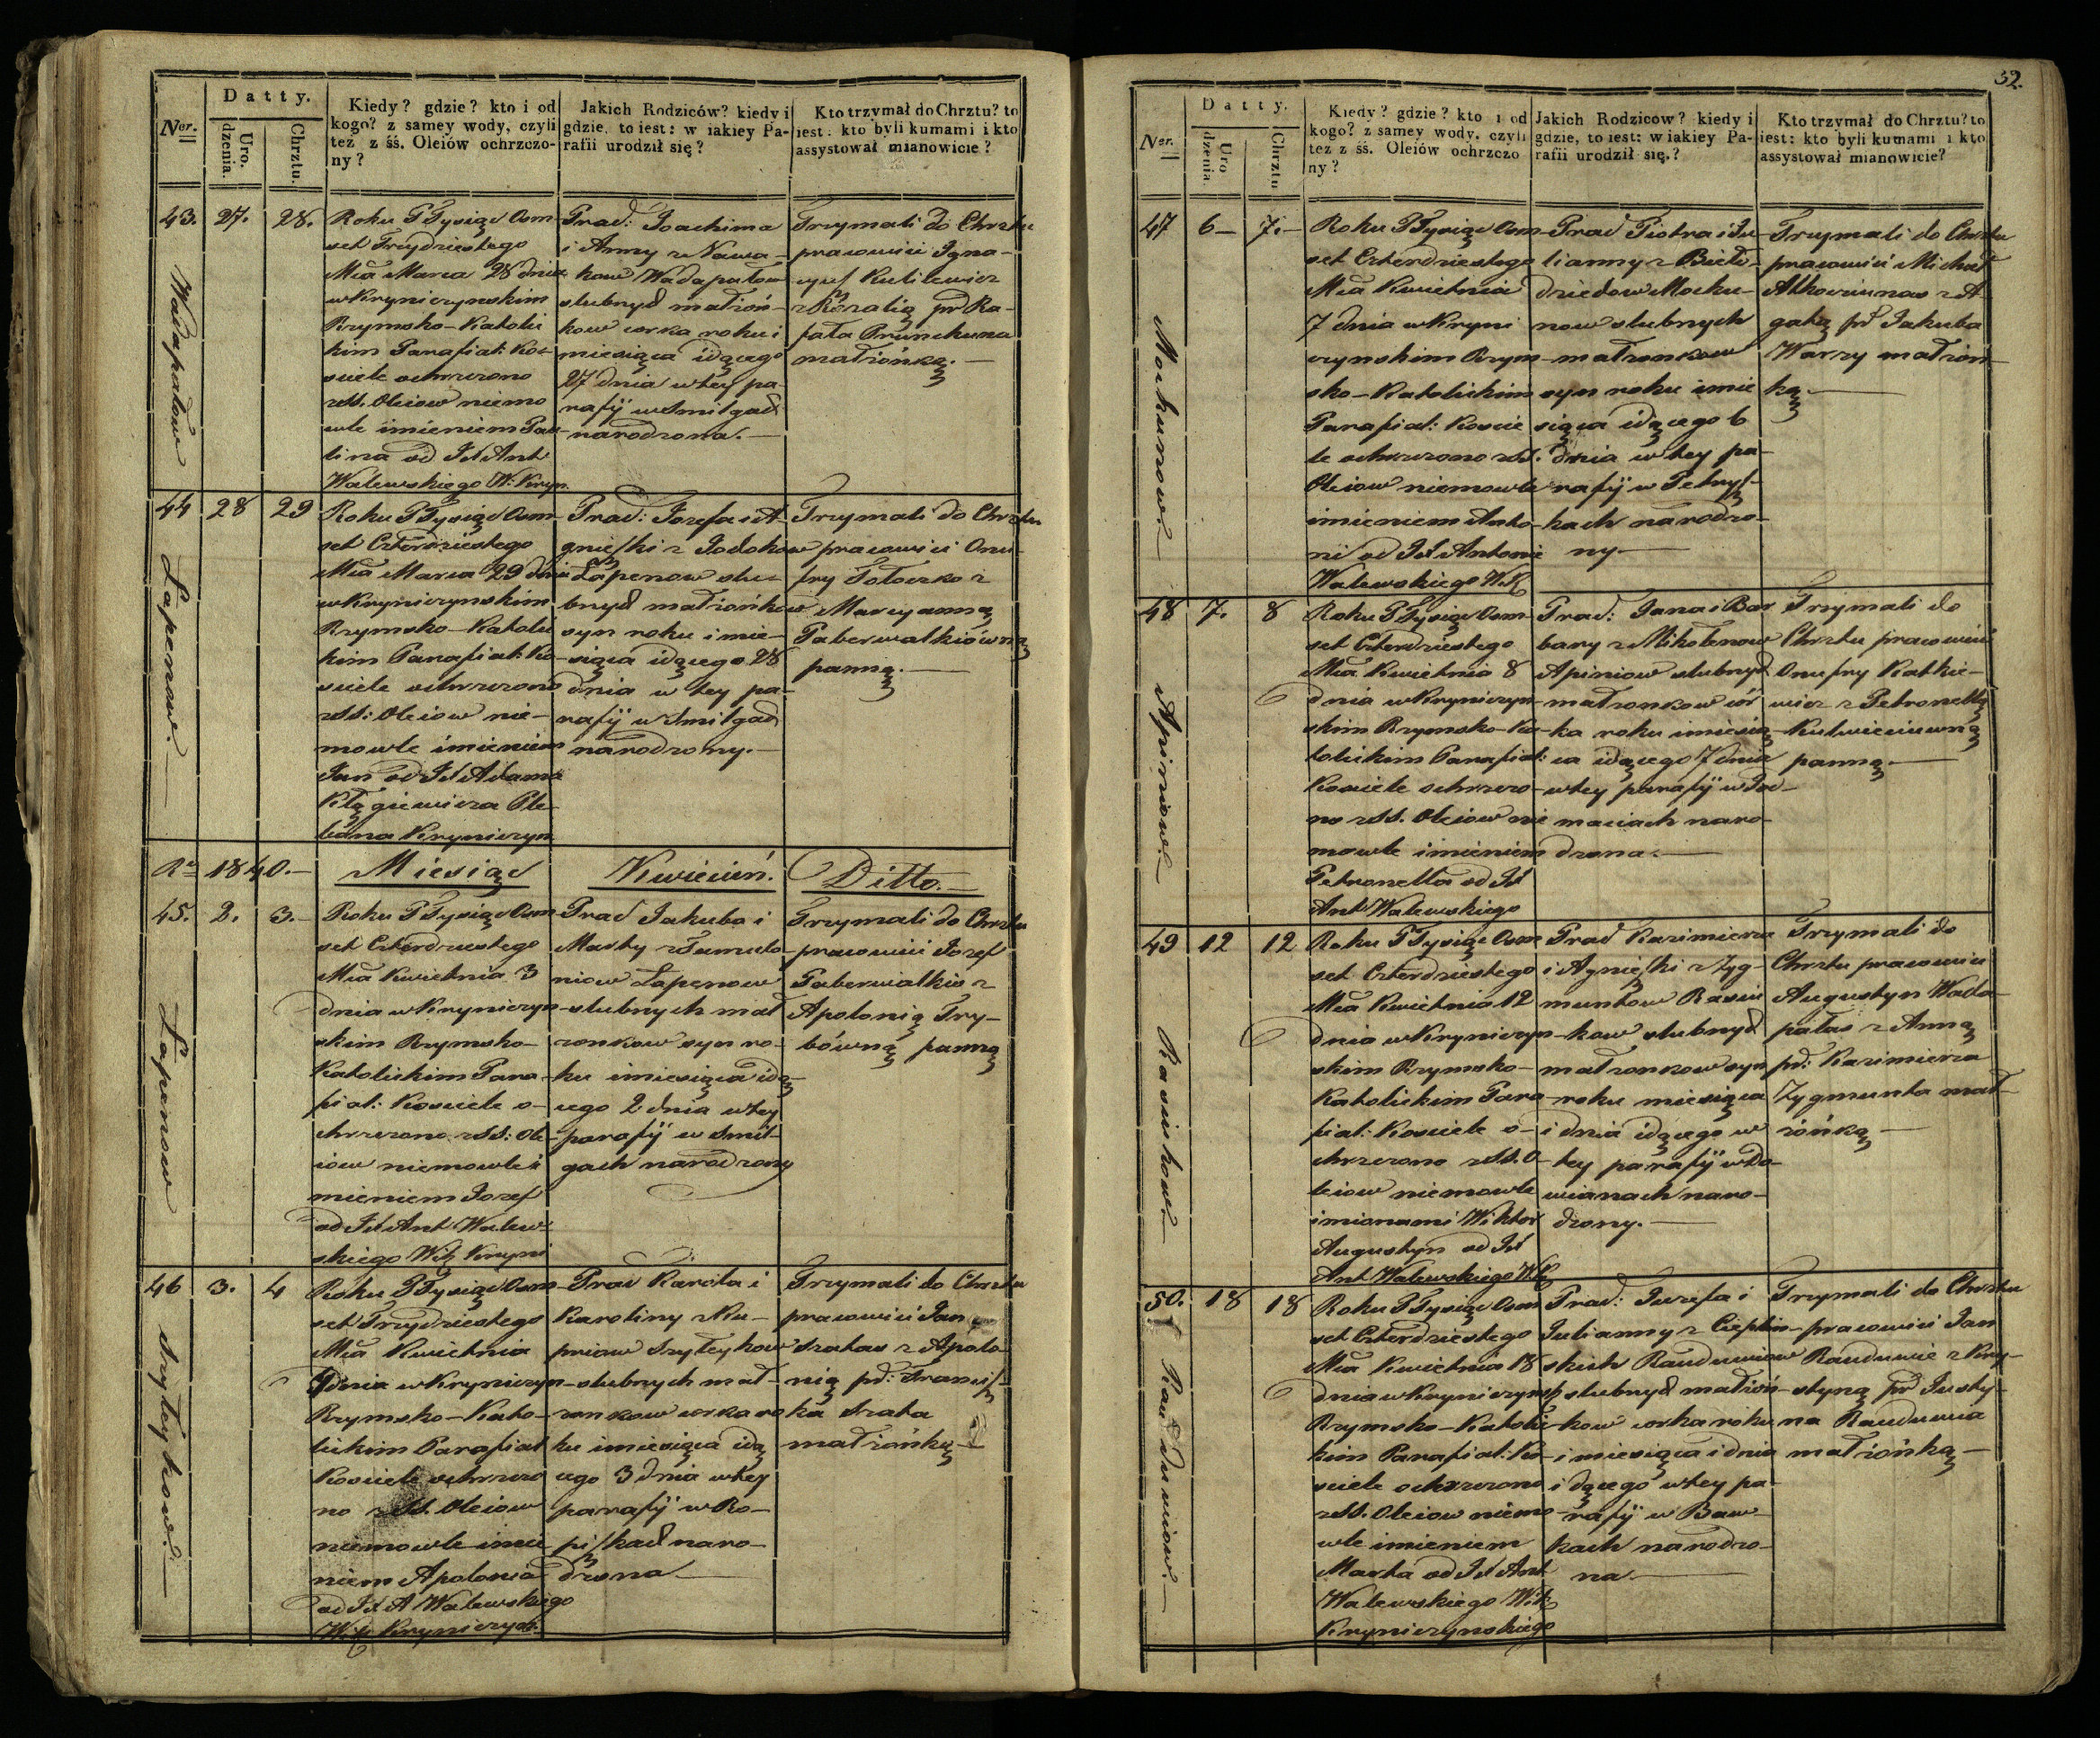 Ner.
Datty.
Uro.
dzenia.
Chrztu.
Kiedy? gdzie? kto i od
kogo? z samey wody, czyli
tez z śś. Oleiów ochrzczo-
ny?
Jakich Rodziców? kiedy i
gdzie, to iest: w iakiey Pa-
rafii urodził się?
Kto trzymał do Chrztu? to
iest: kto byli kumami i kto
assystował mianowicie?
43. 27. 28.
Wadapałow
Roku Tysiąc Osm-
set Trzydziestego
Mca Marca 28 dnia
w Kryniczynskim
Rzymsko-Katolic
kim Parafial: Koś-
ciele ochrzczono
z SS. Oleiow niemo
wle imieniem Pau-
lina od Jx Ant
Walewskiego W. Kryn.
Prac: Joachima
i Anny z Nawa-
kow Wadapałow
slubnych małżoń-
kow corka roku i
miesiąca idącego
27 dnia w tey pa-
rafij w Smilgach
narodzona.—
Trzymali do Chrztu
pracowici Igna-
cy Kulilewicz
z Rozalią pd Ra-
fała Prunchuna
małżonką.—
44 28 29
Łapenow.
Roku Tysiąc Osm-
set Czterdziestego
Mca Marca 29 dnia
w Kryniczynskim
Rzymsko-Katolic
kim Parafial: Ko-
sciele ochrzczono
z SS: Oleiow nie-
mowle imieniem
Jan od Jx Adama
Kłągiewicza Ple-
bana Kryniczyn
Prac: Jozefa i A-
gnieszki z Jodokow
Łapenow slu-
bnych małżońkow
syn roku i mie-
siąca idącego 28
dnia w tey pa-
rafij w Smilgach
narodzony.—
Trzymali do Chrztu
pracowici Onu-
fry Tołoczko z
Marcyanną
Paberwalkiówną
panną.—
Ru 1840.—
Miesiąc Kwiecień. Ditto.—
45. 2. 3.—
Łapenow
Roku Tysiąc Osm
set Czterdziestego
Mca Kwietnia 3
dnia w Krynicyn-
skim Rzymsko-
Katolickim Para-
fial: Kosciele o-
chrzczono z SS: Ole-
iow niemowle i
mieniem Jozef
od Jx Ant Walew-
skiego Wik Kryni
Prac Jakuba i
Marty z Tamulo-
niow Łapenow
slubnych mał
zonkow syn ro-
ku i miesiąca idą-
cego 2 dnia w tey
parafij w Smil-
gach narodzony
Trzymali do Chrztu
pracowici Jozef
Paberwalkis z
Apolonią Try-
bówną panną
46 3. 4
Szyłeykow.
Roku Tysiąc Osm-
set Trzydziestego
Mca Kwietnia
4 dnia w Krynicyn-
Rzymsko-Kato-
lickim Parafial
Kosciele ochrzczo
no z SS. Oleiow
niemowle imie
niem Apolonia
od Jx A Walewskiego
Wik Krynicyn.
Prac Karola i
Karoliny z Ku-
priow Szyłeykow
slubnych mał-
zonkow corka ro
ku i miesiąca idą
cego 3 dnia w tey
parafij w Ro-
piszkach naro-
dzona—
Trzymali do Chrztu
pracowici Jan
Szatas z Apolo
nią pd: Francisz
ka Szata
małżońką—
32.
Ner.
Datty.
Uro
dzenia.
Chrztu
Kiedy? gdzie? kto i od
kogo? z samey wody, czyli
tez z śś. Oleiów ochrzczo
ny?
Jakich Rodziców? kiedy i
gdzie, to iest: w iakiey Pa-
rafii urodził się?
Kto trzymał do Chrztu? to
iest: kto byli kumami i kto
assystował mianowicie?
47 6— 7.—
Mockunow.
Roku Tysiąc Osm
set Czterdziestego
Mca Kwietnia
7 dnia w Kryni
czynskim Rzym-
sko-Katolickim
Parafial: Koscie
le ochrzczono z SS.
Oleiow niemowle
imieniem Anto-
ni od Jx Antonie
Walewskiego WK
Prac Piotra i Ju-
lianny z Bieło-
dziedow Mocku-
now slubnych
małzonkow
syn roku i mie
siąca idącego 6
dnia w tey pa-
rafij w Petrysz-
kach narodzo-
ny—
Trzymali do Chrztu
pracowici Michał
Ałkowiunas z A
gatą pd Jakuba
Warzy małżon
ką—
48 7. 8
Apiniow.
Roku Tysiąc Osm-
set Czterdziestego
Mca Kwietnia 8
dnia w Krynicyn-
skim Rzymsko-Ka-
tolickim Parafial:
Kosciele ochrzczo-
no z SS. Oleiow nie
mowle imieniem
Petronella od Jx
Ant Walewskiego
Prac: Jana i Bar
bary z Mikołenow
Apiniow slubnych
małzonkow cor
ka roku i miesią-
ca idącego 7 dnia
w tey parafij w Do-
maciach naro-
dzona.—
Trzymali do
Chrztu pracowici
Onufry Katkie-
wicz z Petronellą
Kulwieciuwną
panną.—
49 12 12
Rasiukow.
Roku Tysiąc Osm
set Czterdziestego
Mca Kwietnia 12
dnia w Krynicyn
skim Rzymsko-
Katolickim Para-
fial: Kosciele o-
chrzczono z SS. O-
leiow niemowle
imionami Wiktor
Augustyn od Jx
Ant Walewskiego WK
Prac Kazimierza
i Agnieszki z Zyg-
muntow Rasiu
kow slubnych
małzonkow syn
roku miesiąca
i dnia idącego w
tey parafij w Do-
wianach naro-
dzony.—
Trzymali do
Chrztu pracowici
Augustyn Wada-
pałas z Anną
pd: Kazimierza
Zygmunta mał-
żónką—
50. 18 18
Rauduwiow.
Roku Tysiąc Osm
set Czterdziestego
Mca Kwietnia 18
dnia w Krynicynsk
Rzymsko-Katolic-
kim Parafial: Ko-
sciele ochrzczono
z SS. Oleiow niemo
wle imieniem
Marta od Jx Ant
Walewskiego Wik
Krynicynskiego
Prac: Jozefa i
Julianny z Cieplin-
skich Rauduwiow
slubnych małżoń-
kow corka roku
i miesiąca i dnia
idącego w tey pa-
rafij w Baw-
kach narodzo-
na.—
Trzymali do Chrztu
pracowici Jan
Rauduwie z Kry-
styną pd Justy-
na Rauduwia
małżońką—